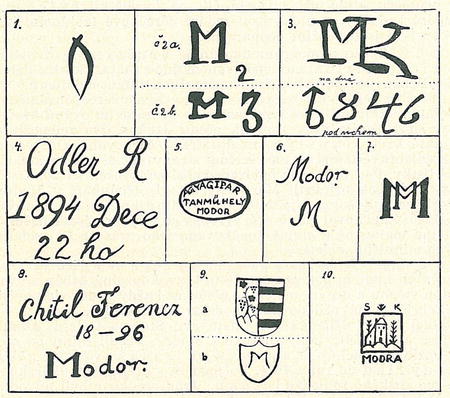 1.
č 2a. M 2
č. 2b. M 3
3.
MK
na dně
6846
pod uchem
4.
Odler R
1894 Dece
22 ho
5.
AGYAGIPAR
TANMŰHELY
MODOR
6.
Modor
M
7.
M
8.
Chitil Ferencz
18-96
Modor.
9.
a
b
M
10.
S K
MODRA